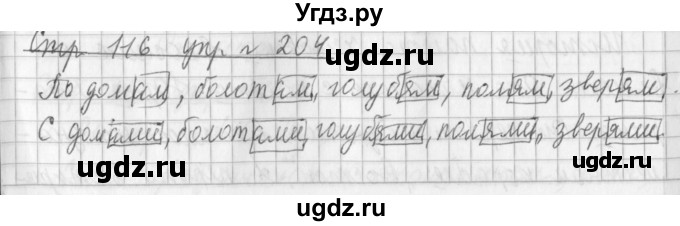 Угдз.ру
Стр 116 упр № 204
ugdz.ru
По домам, болотам, голубям, полям, зверям.
С домами, болотами, голубями, полями, зверями.
ugdz.ru ugdz.ru
ugdz.ru